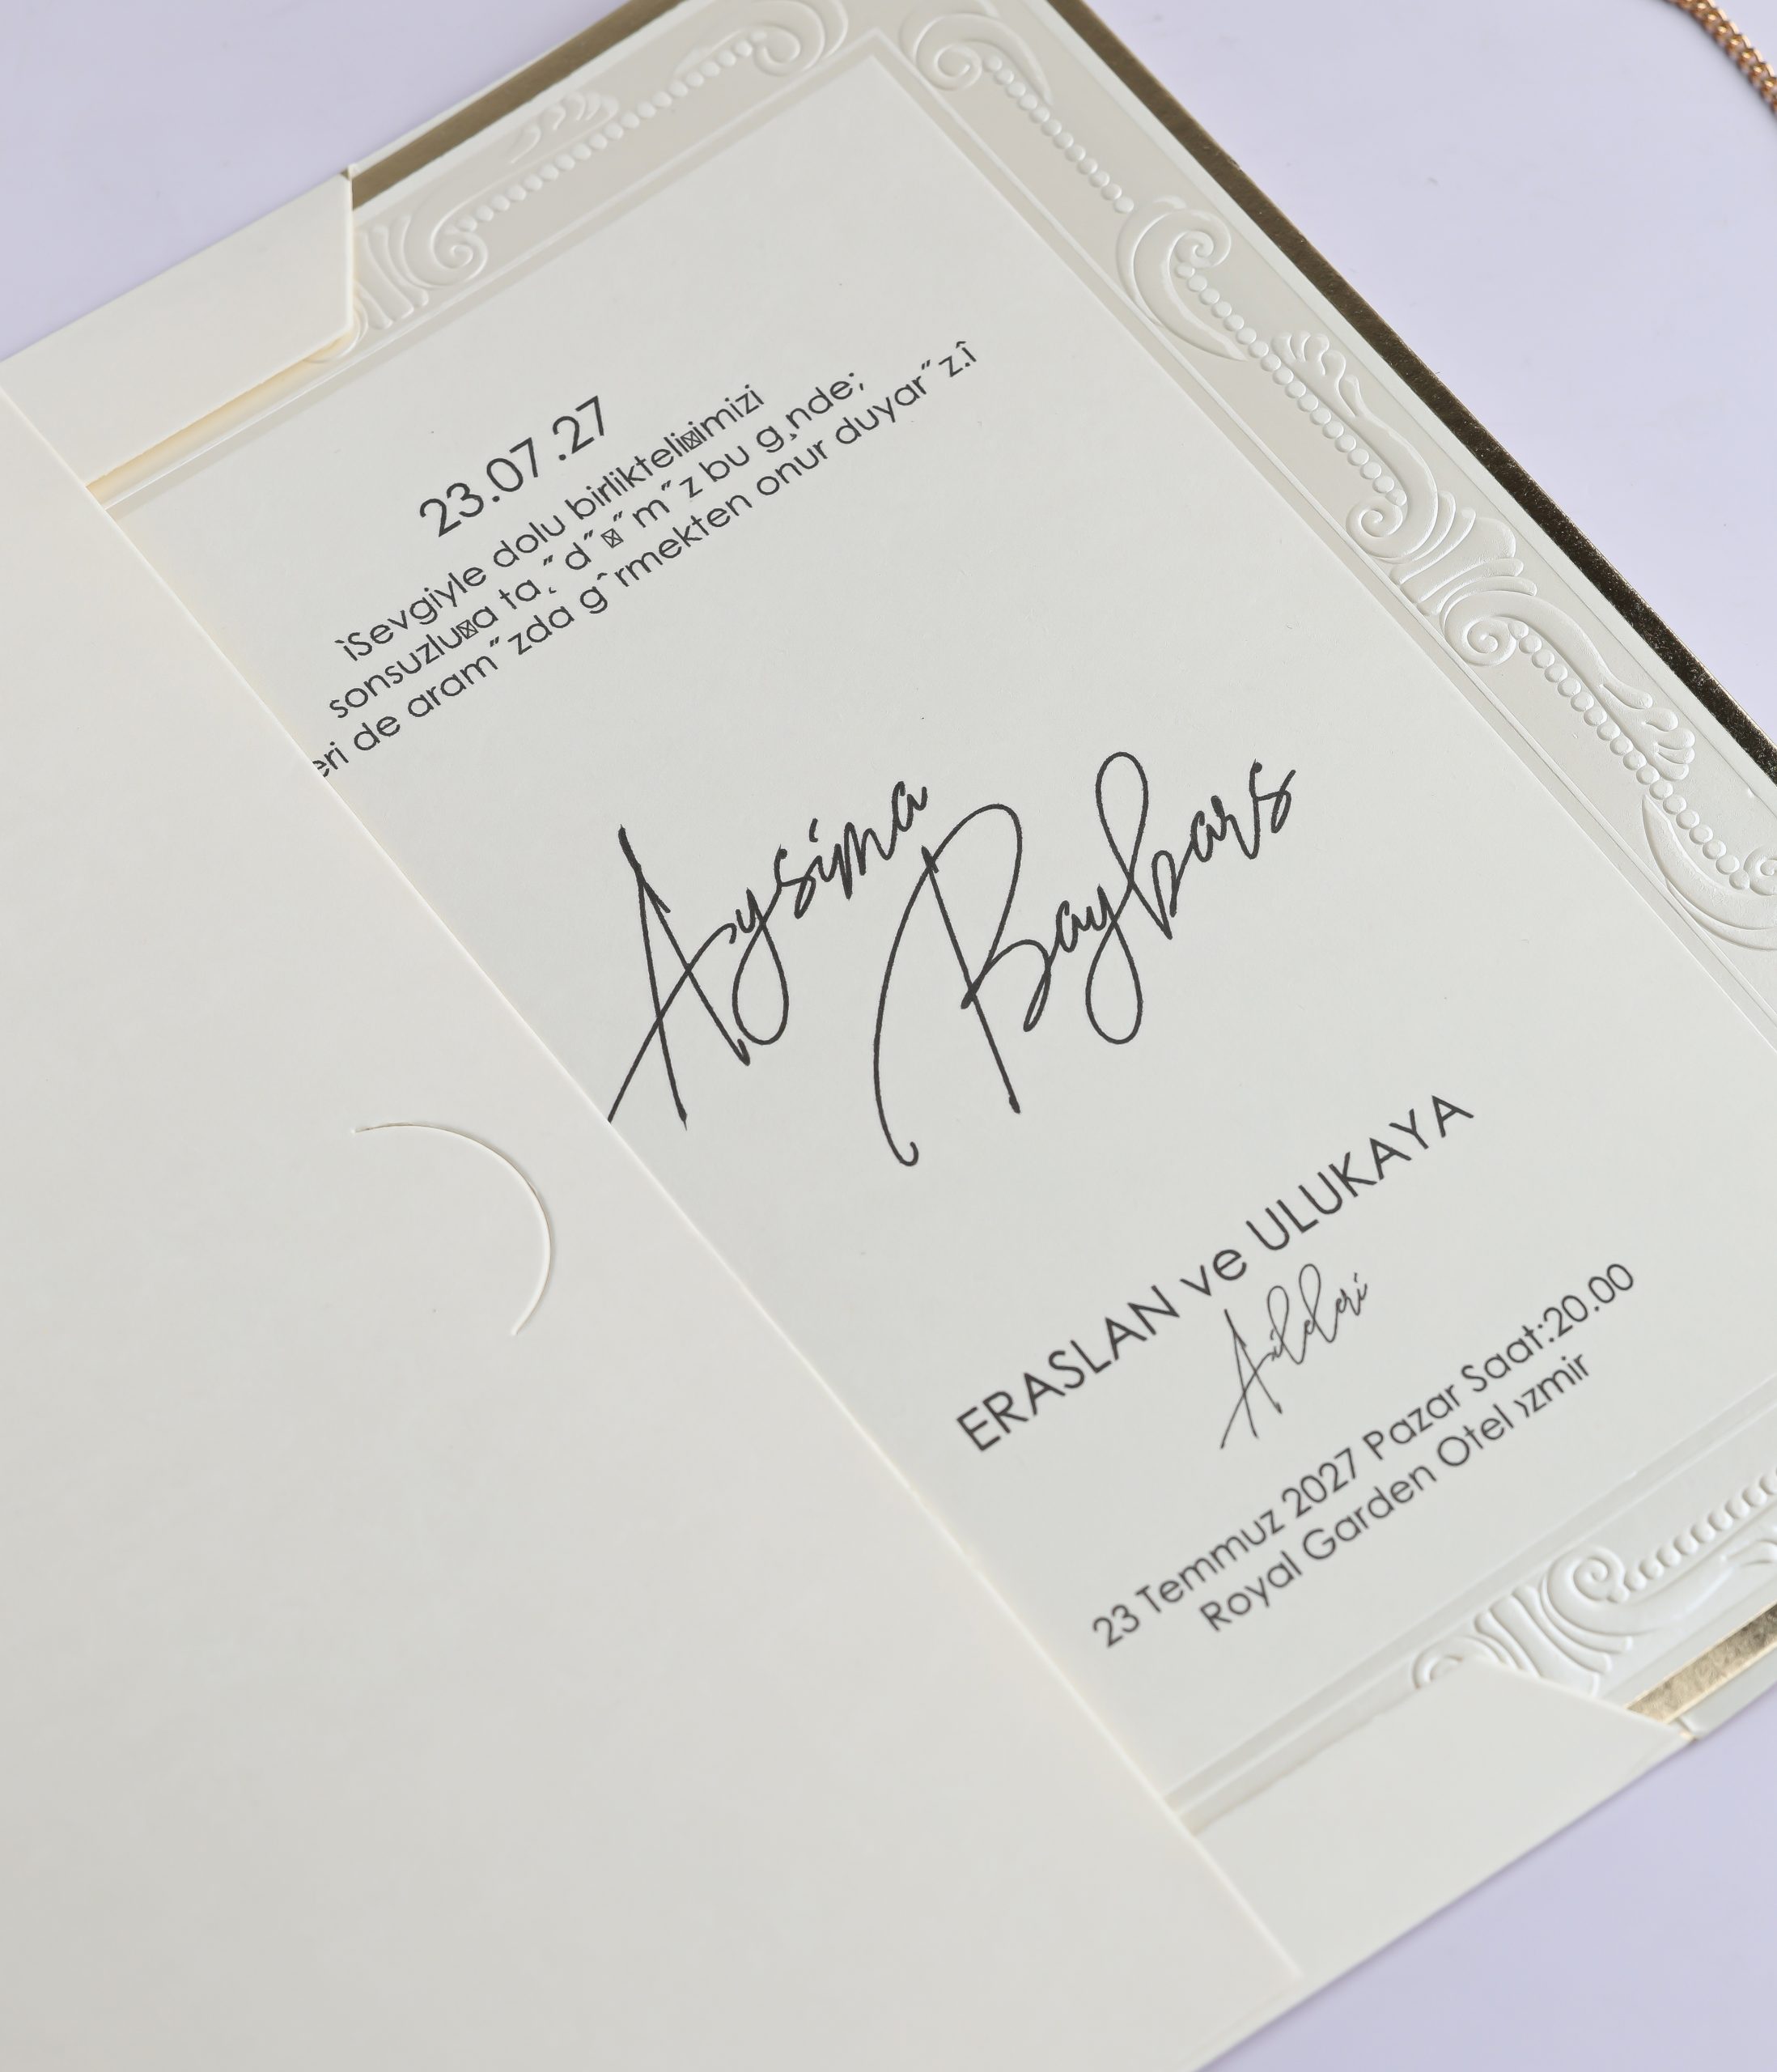 23.07.27
ìSevgiyle dolu birlikteli☒imizi
sonsuzlu☒a ta¸˝d˝☒˝m˝z bu g¸nde;
eri de aram˝zda gˆrmekten onur duyar˝z.î
Aysima
Baybars
ERASLAN ve ULUKAYA
Aileleri
23 Temmuz 2027 Pazar Saat:20.00
Royal Garden Otel ›zmir